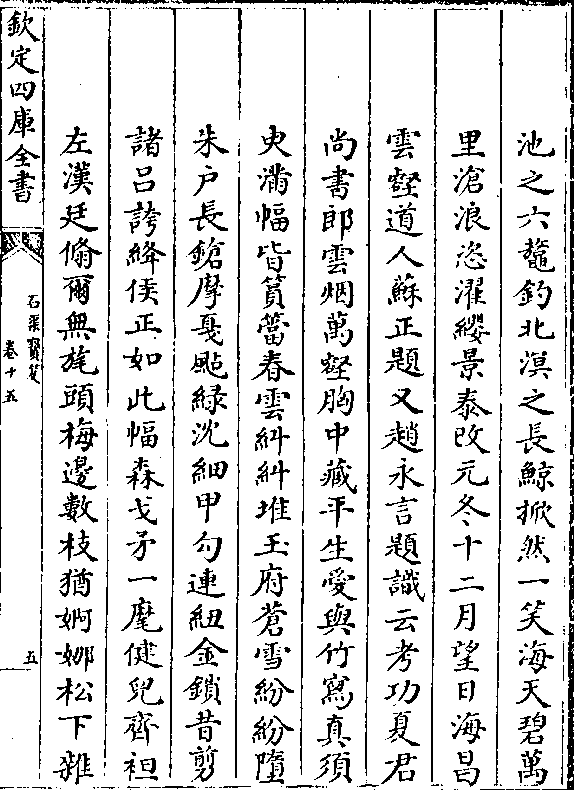 池之六鼇釣北溟之長鯨掀然一笑海天碧萬
里滄浪恣濯纓景泰改元冬十二月望日海昌
雲壑道人蘇正題又趙永言題識云考功夏君
尚書郎雲烟萬壑胸中藏平生愛與竹寫真須
臾滿幅皆篔簹春雲糾糾堆玉府蒼雪紛紛墮
朱户長鎗摩戛颭緑沈細甲勾連紐金鎖昔剪
諸吕誇絳侯正如此幅森戈矛一麾健兒齊袒
左漢廷翛爾無旄頭梅邊數枝猶婀娜松下雜
欽定四庫全書
石渠寳笈
卷十五
五